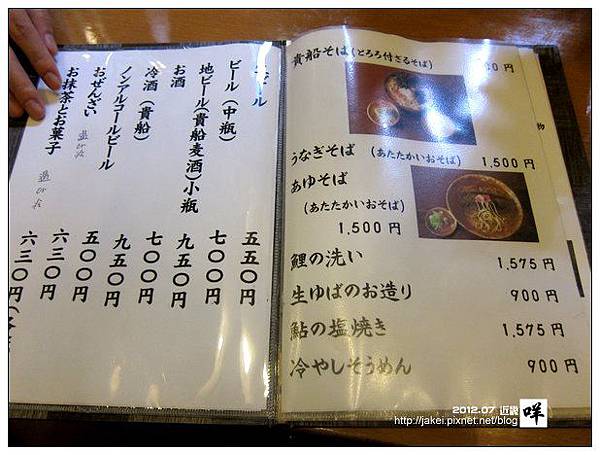 ビール 五五〇円
ビール（中瓶） 七〇〇円
地ビール（貴船麦酒）小瓶 九五〇円
お酒 七〇〇円
冷酒（貴船） 九五〇円
ノンアルコールビール 五〇〇円
おぜんざい 温or冷 六三〇円
お抹茶とお菓子 温or冷 六三〇円
貴船そば（とろろ付ざるそば） 円
物
うなぎそば （あたたかいおそば） 1,500円
あゆそば
（あたたかいおそば）
1,500円
鯉の洗い 1,575円
生ゆばのお造り 900円
鮎の塩焼き 1,575円
冷やしそうめん 900円
2012.07 近畿 咩
http://jakei.pixnet.net/blog